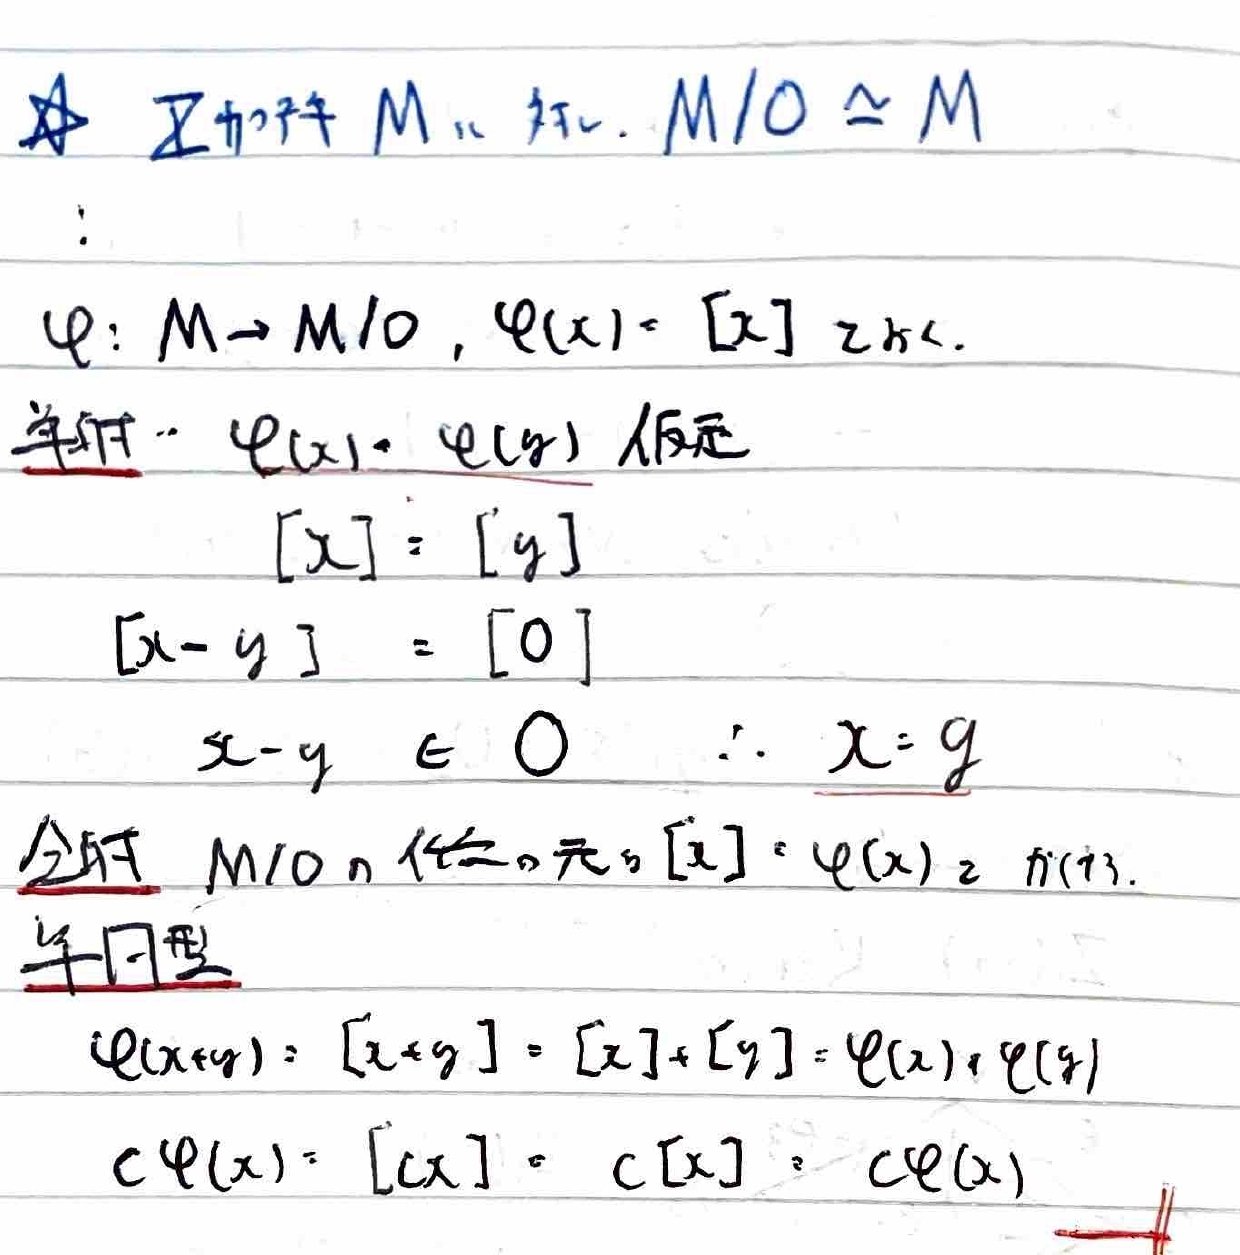 ☆ Z加群 M に 対し. M/0 ≃ M
:
φ: M→M/0, φ(x) = [x] とおく.
単射‥ φ(x) = φ(y) 仮定
[x] = [y]
[x-y] = [0]
x-y ∈ 0 ∴ x=y
全射 M/0 の 任意の元は [x] = φ(x) と かける.
準同型
φ(x+y) = [x+y] = [x]+[y] = φ(x)+φ(y)
cφ(x) = [cx] = c[x] = cφ(x)